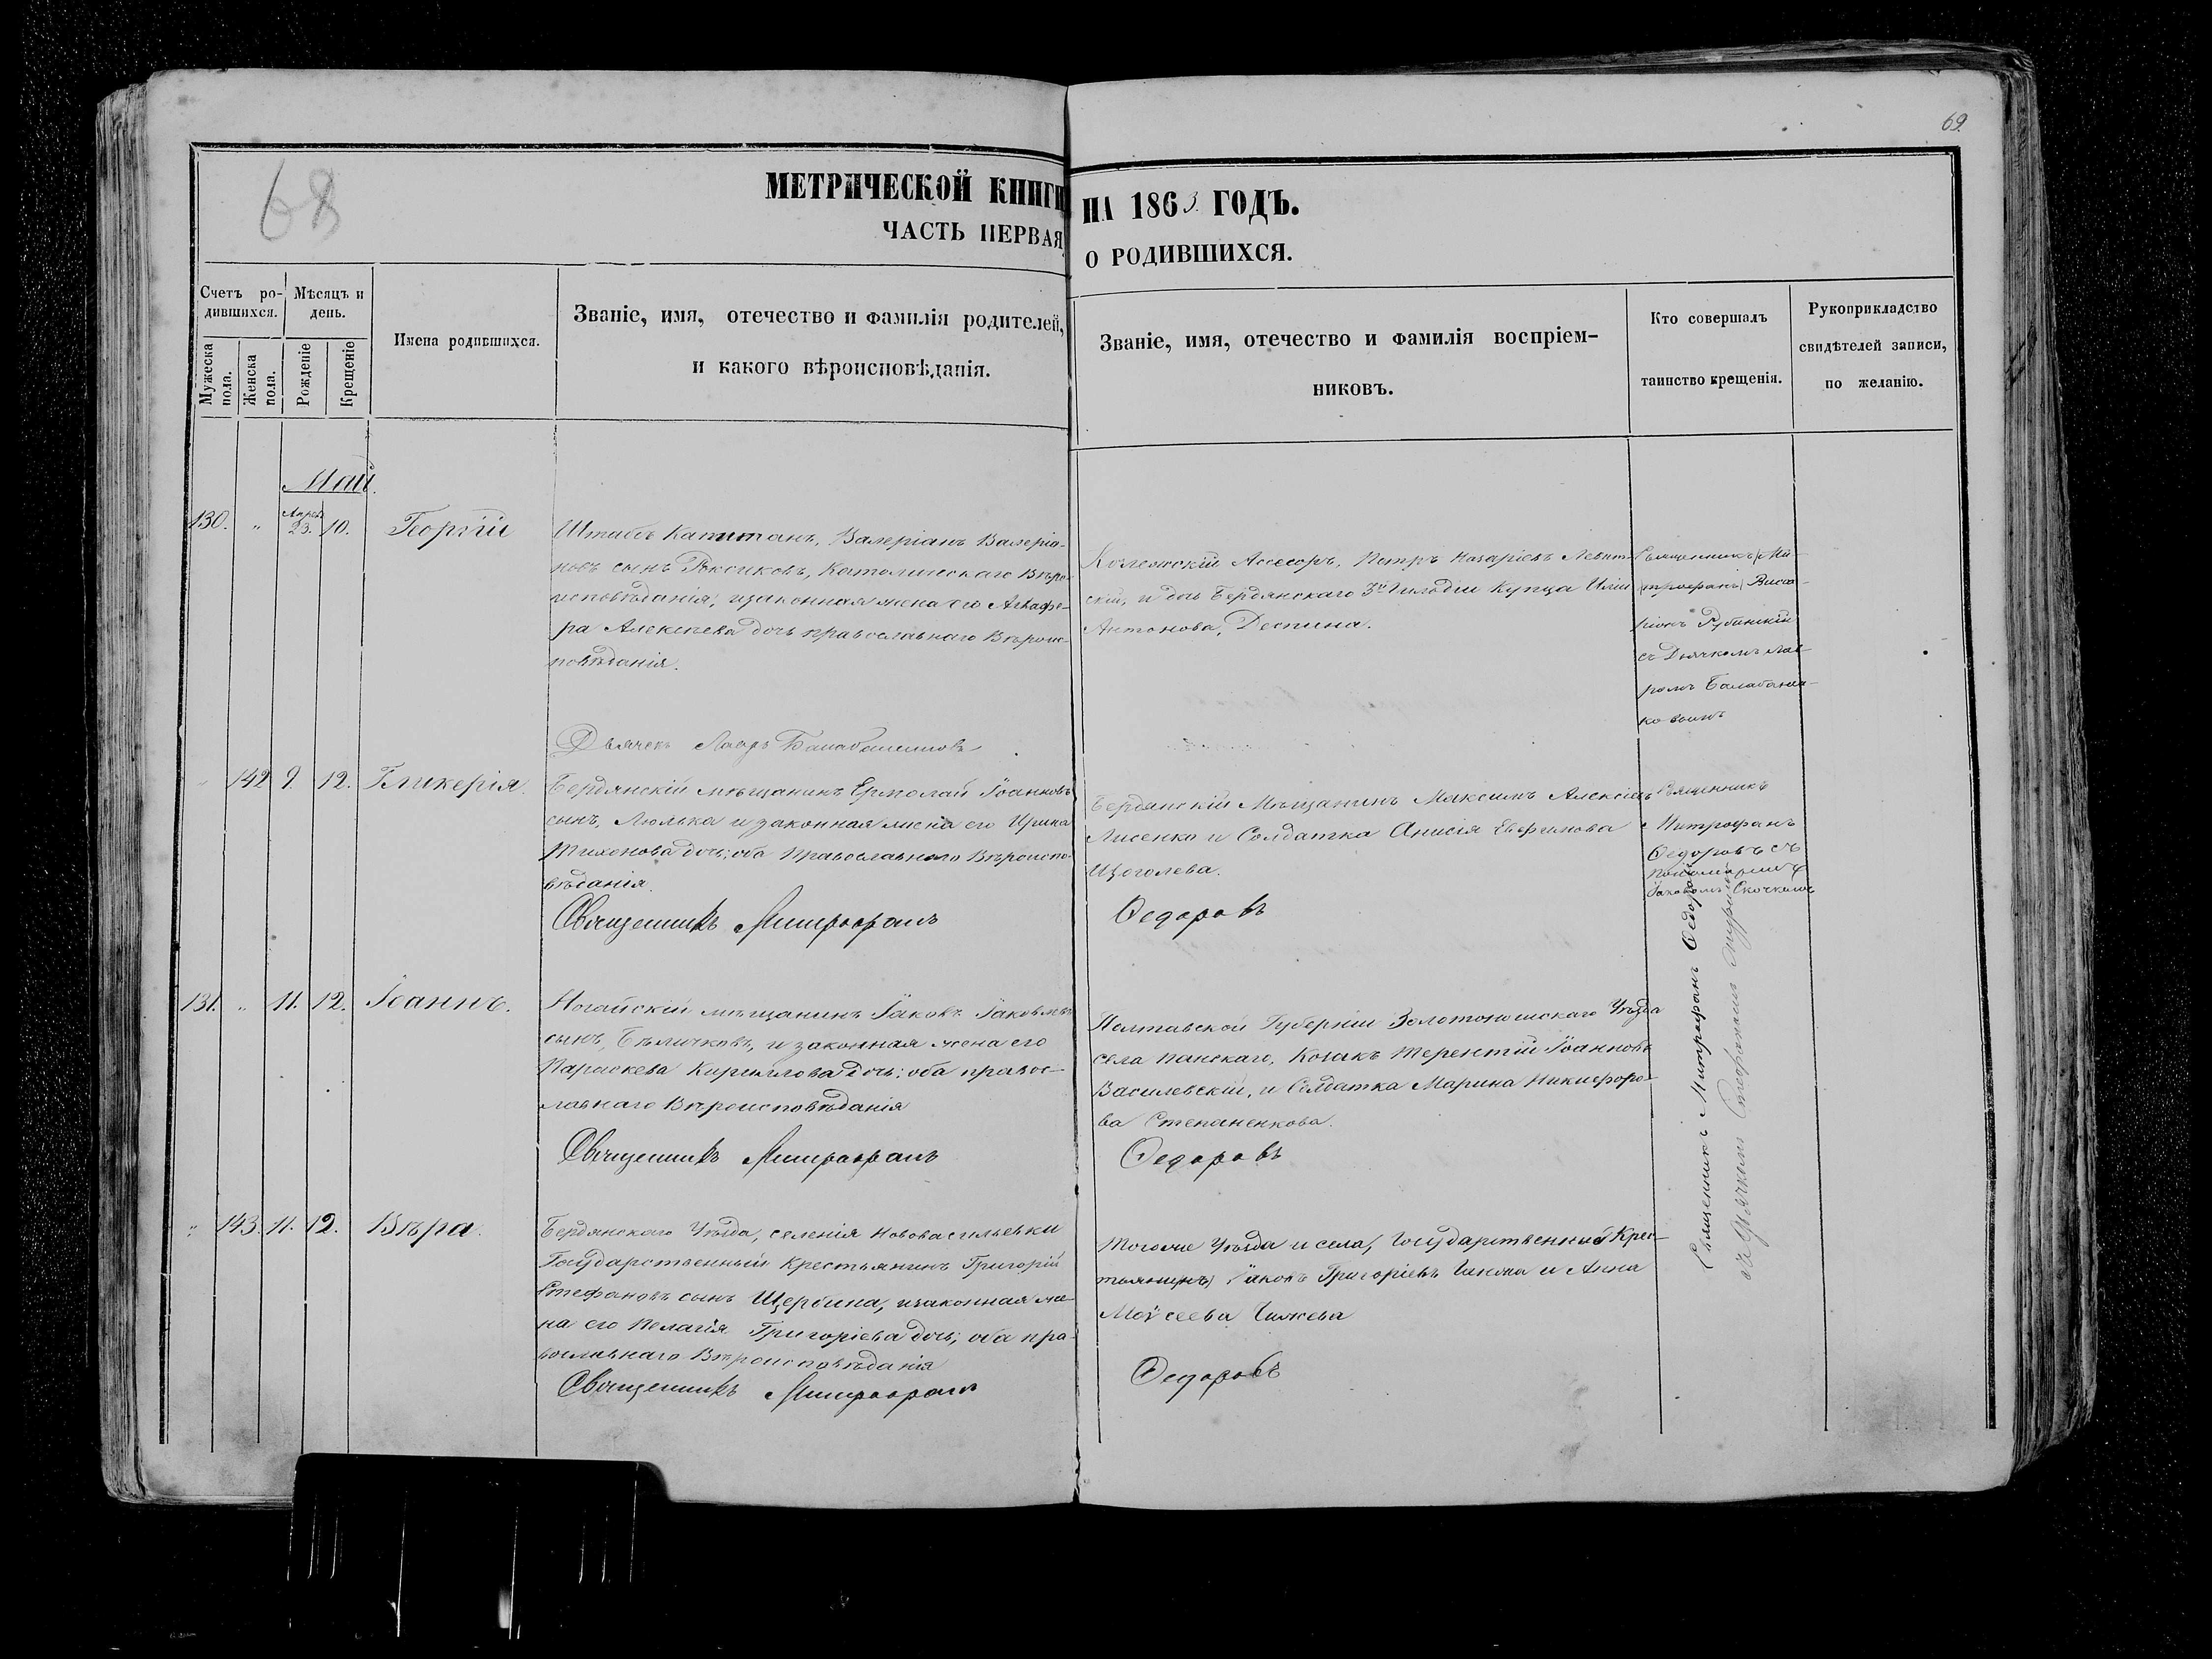 69.
68
МЕТРИЧЕСКОЙ КНИГИ НА 1863 ГОДЪ.
ЧАСТЬ ПЕРВАЯ, О РОДИВШИХСЯ.
Счетъ ро-
дившихся.
Мужеска пола.
Женска пола.
Мѣсяцъ и
день.
Рожденіе
Крещеніе
Имена родившихся.
Званіе, имя, отечество и фамилія родителей,
и какого вѣроисповѣданія.
Званіе, имя, отечество и фамилія воспріем-
никовъ.
Кто совершалъ
таинство крещенія.
Рукоприкладство
свидѣтелей записи,
по желанію.
Май.
130. " Апрел 23. 10. Георгій
Штабсъ Капитанъ, Валеріанъ Валеріа-
новъ сынъ Католическаго Вѣро-
исповѣданія, и законная жена его Агафо-
Алексѣева дочь православнаго Вѣроис-
повѣданія.
Колежскій Ассесоръ, Петръ Назаріевъ Левит-
скій, и дочь Бердянскаго 3й Гильдіи Купца Иліи
Антонова, Деспина.
Священникъ Ми-
трофанъ Висса-
ріонъ Рубинскій
съ Дьячкомъ Лав-
ромъ Балабанен-
ковымъ
Дьячекъ Лавръ
" 142 9. 12. Гликерія.
Бердянскій мѣщанинъ Ермолай Іоанновъ
сынъ, Люлька и законная жена его Ирина
Тихонова дочь; оба Православнаго Вѣроиспо-
вѣданія.
Бердянскій Мѣщанинъ Максимъ Алексіевъ
Лисенко и Солдатка Анисія Евфимова
Щоголева.
Священникъ
Митрофанъ
Ѳедоровъ съ
пономаремъ
Іаковомъ Скочкомъ
Священникъ Митрофанъ Ѳедоровъ
131. " 11. 12. Іоаннъ.
Ногайскій мѣщанинъ Іаковъ Іаковлевъ
сынъ, Бѣличковъ, и законная жена его
Параскева Кириллова дочь; оба правос-
лавнаго Вѣроисповѣданія
Полтавской Губерніи Золотоношскаго Уѣзда
села Панскаго, Козакъ Терентій Іоанновъ
Василевскій, и Солдатка Марина Никифоро-
ва Степаненкова.
Священникъ Митрофанъ Ѳедоровъ
Священникъ Митрофанъ Ѳедоровъ
съ Дьячкомъ Стефаномъ
" 143. 11. 12. Вѣра.
Бердянскаго Уѣзда, селенія Нововасильевки
Государственный Крестьянинъ Григорій
Стефановъ сынъ Щербина, и законная же-
на его Пелагія Григоріева дочь; оба пра-
вославнаго Вѣроисповѣданія
Тогоже Уѣзда и села, Государственный Крес-
тьянинъ Іаковъ Григоріевъ и Анна
Моѵсеева
Священникъ Митрофанъ Ѳедоровъ